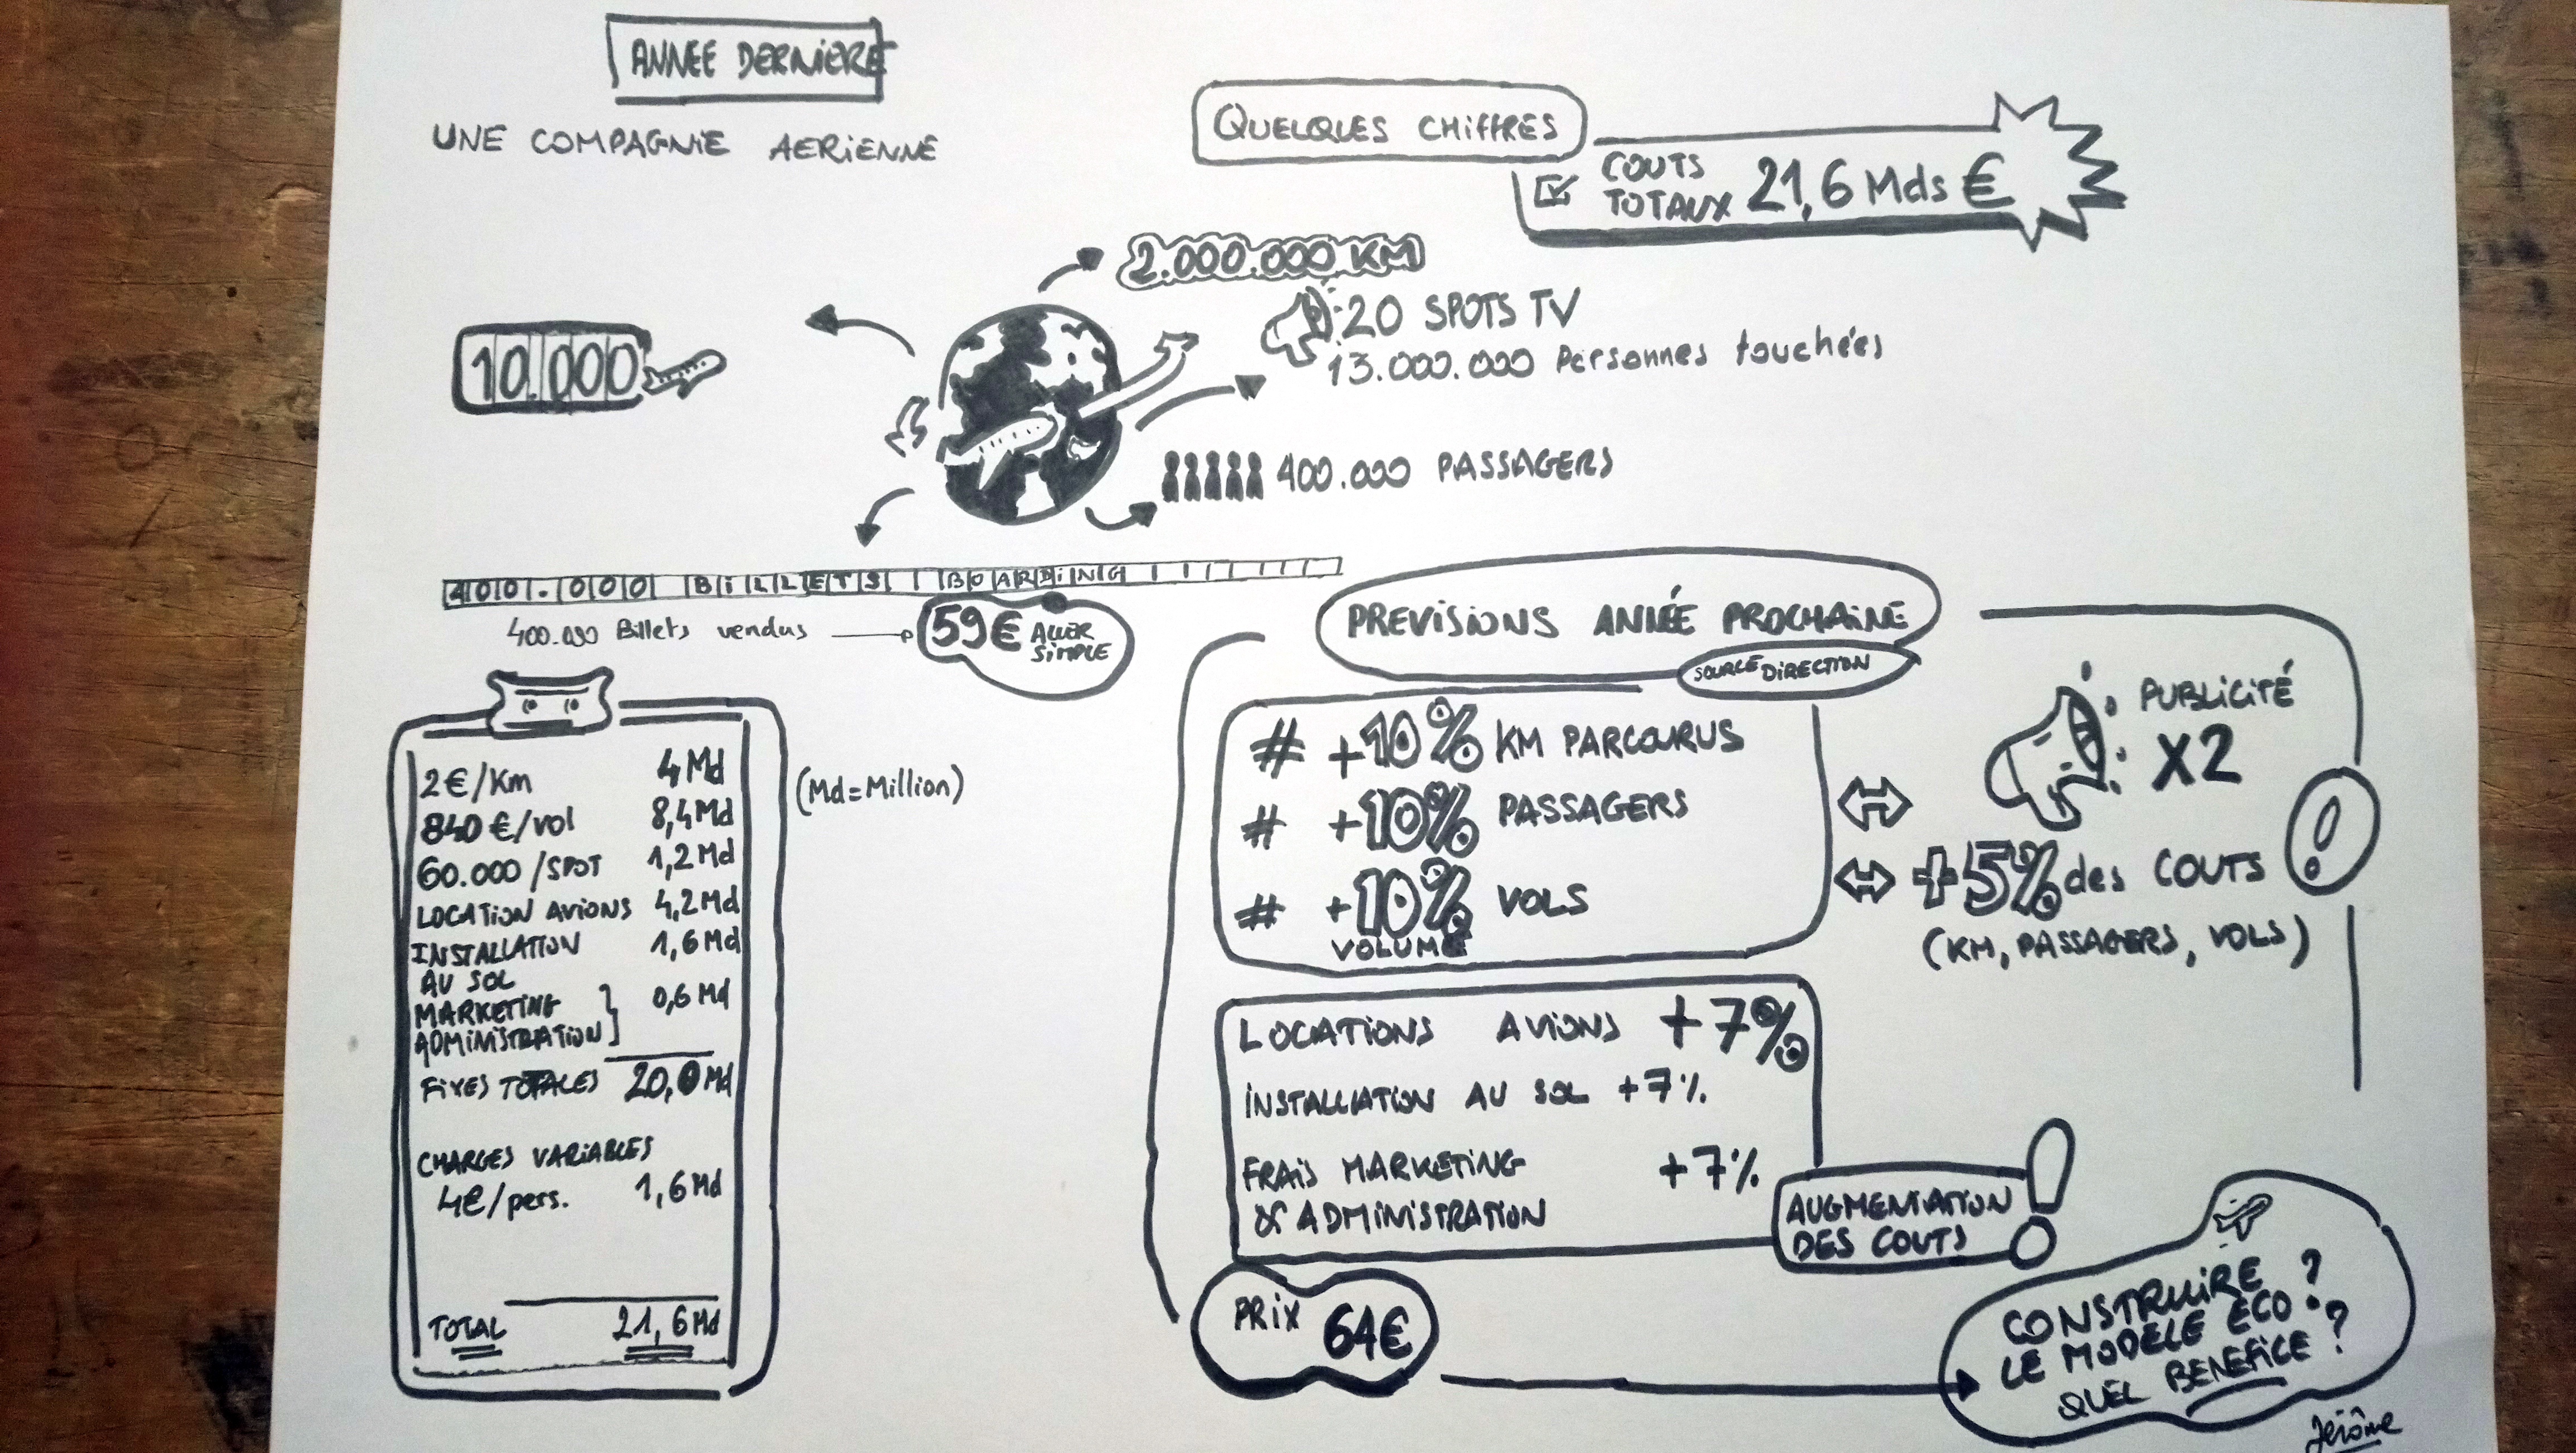 ANNEE DERNIERE
UNE COMPAGNIE AERIENNE
QUELQUES CHIFFRES
COUTS
TOTAUX 21,6 Mds €
2.000.000 KM
20 SPOTS TV
13.000.000 Personnes touchées
10.000
400.000 PASSAGERS
400.000 BILLETS BOARDING
400.000 Billets vendus
59€ ALLER
SIMPLE
2€/Km 4 Md
(Md=Million)
840 €/vol 8,4 Md
60.000 /SPOT 1,2 Md
LOCATION AVIONS 4,2 Md
INSTALLATION 1,6 Md
AU SOL
MARKETING 0,6 Md
ADMINISTRATION
FIXES TOTALES 20,0 Md
CHARGES VARIABLES
4€/pers. 1,6 Md
TOTAL 21,6 Md
PREVISIONS ANNÉE PROCHAINE
SOURCE DIRECTION
# +10% KM PARCOURUS
# +10% PASSAGERS
# +10% VOLS
VOLUME
PUBLICITÉ
X2
+5% des COUTS
(KM, PASSAGERS, VOLS)
!
LOCATIONS AVIONS +7%
INSTALLATION AU SOL +7%
FRAIS MARKETING +7%
& ADMINISTRATION
AUGMENTATION
DES COUTS !
PRIX 64€
CONSTRUIRE
LE MODELE ECO ?
QUEL BENEFICE ?
Jérôme